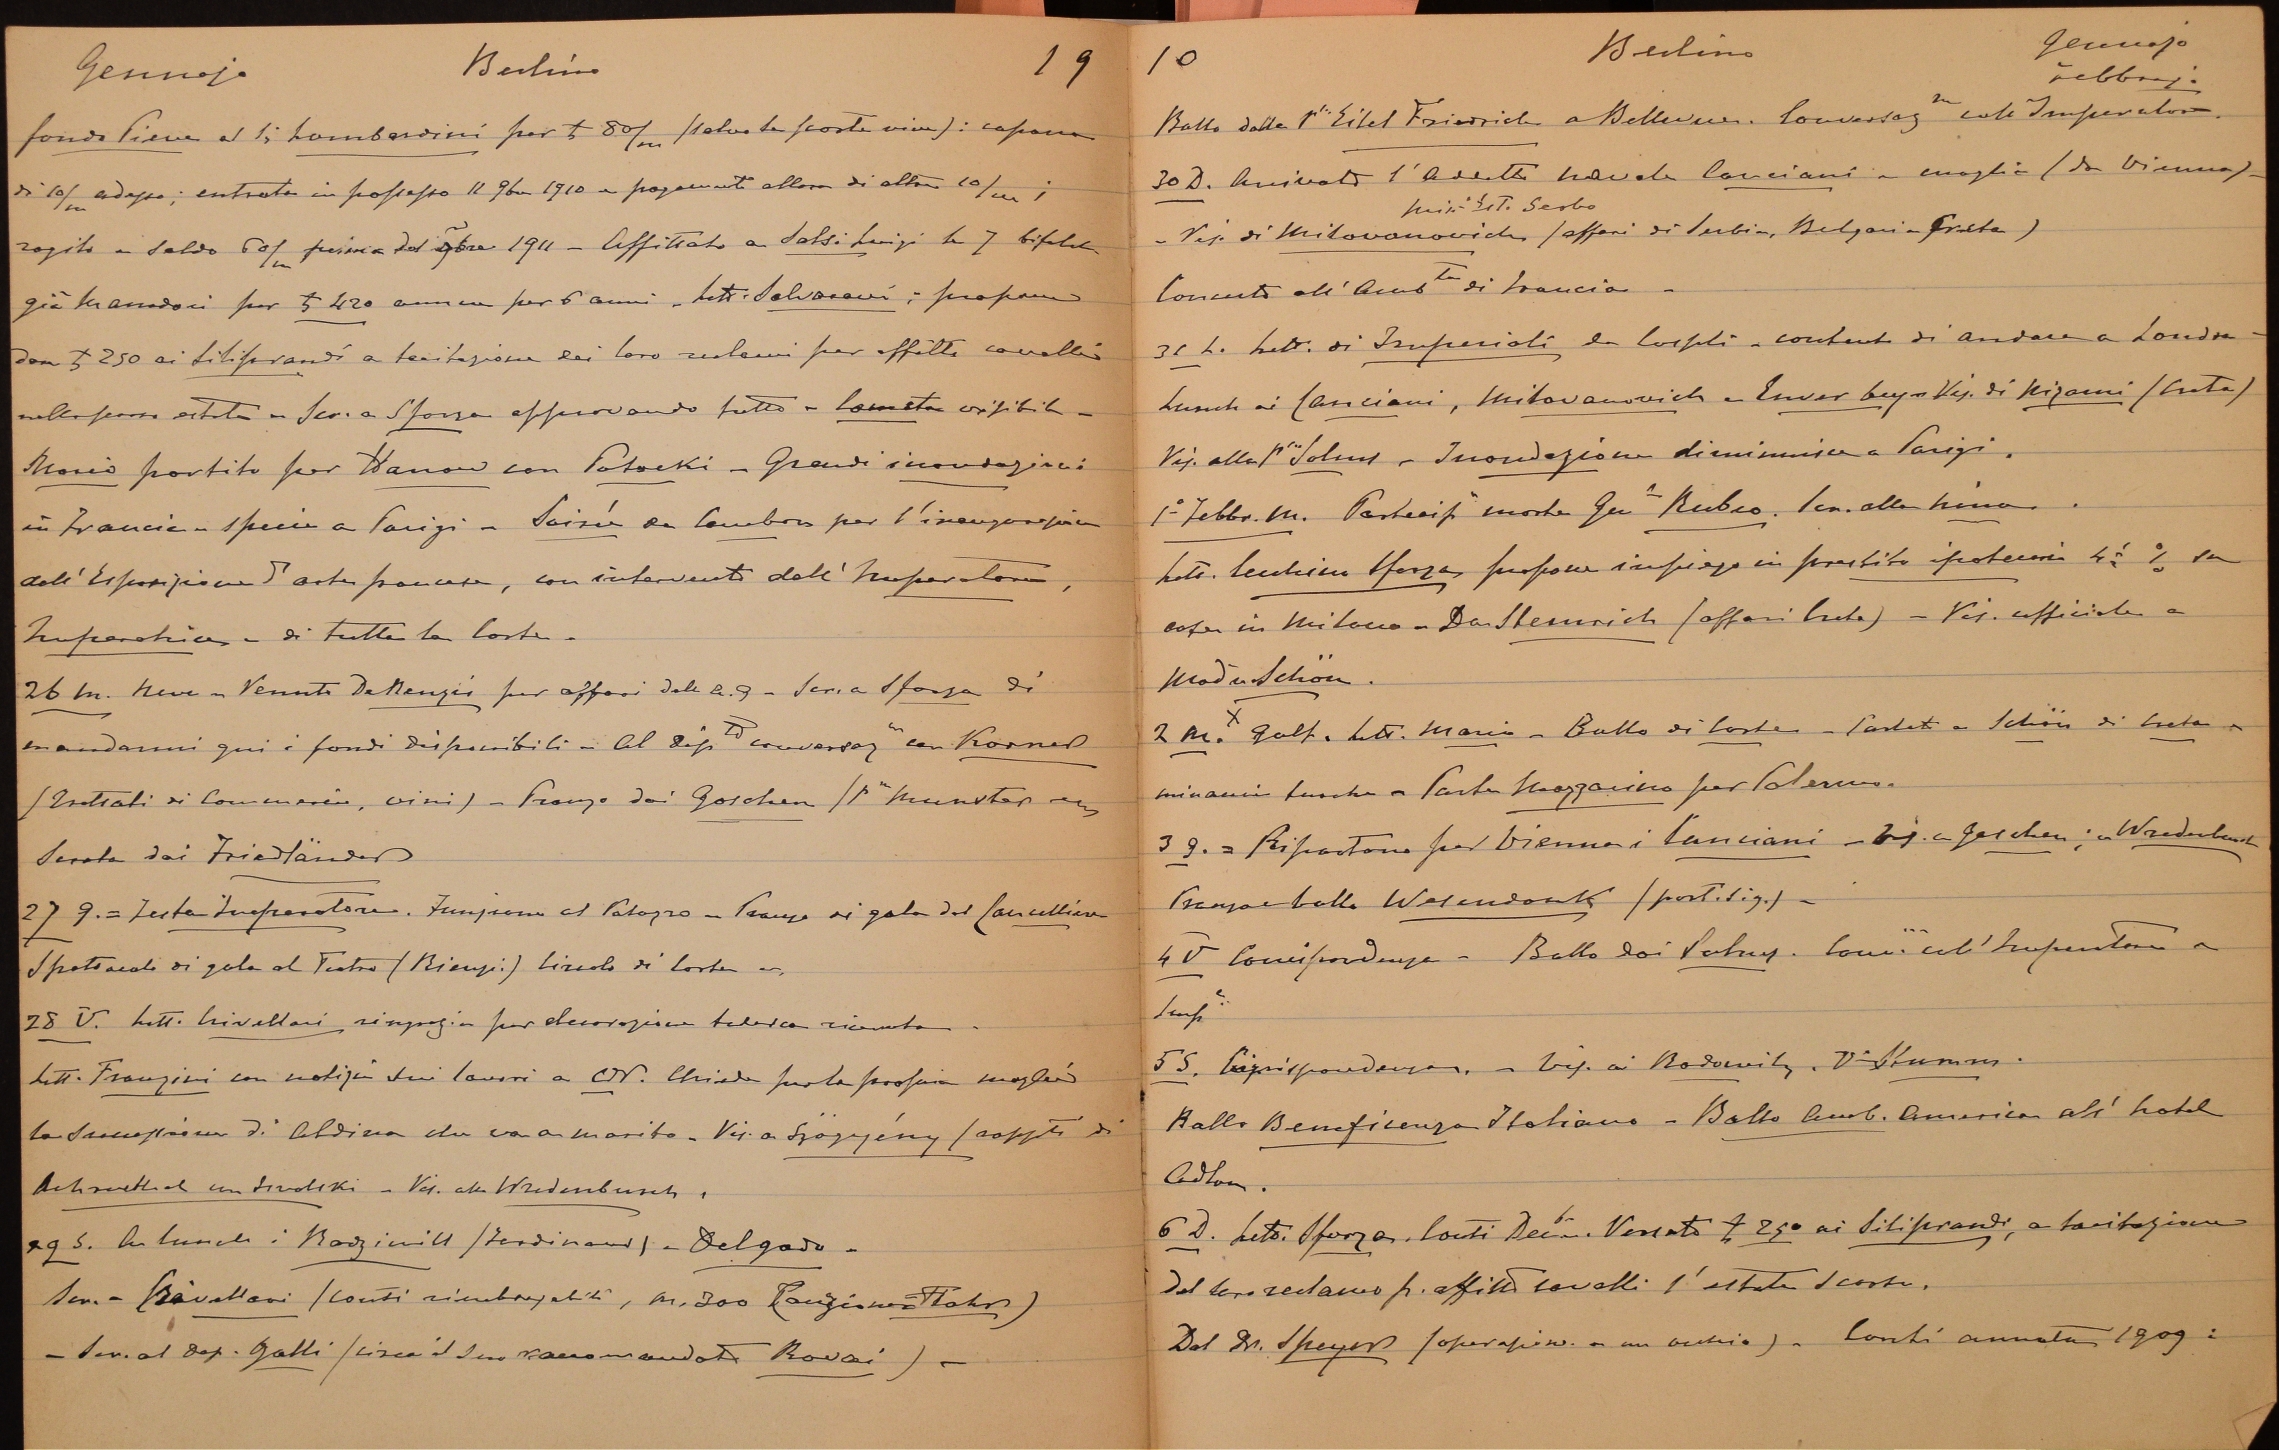 Gennajo Berlino 19
fondo Pieve al Sr Lombardini per £ 80/m (salvo le scorte vive): caparra
di 10/m adesso; entrata in possesso 11 9bre 1910 e pagamento allora di altre 10/m;
rogito a saldo 60/m prima del 9bre 1911 – Affittato a Salsi Luigi le 7 bifolche
già Manodori per £ 420 annue per 6 anni – lett. Salvarani: propone
dare £ 250 ai Siliprandi a tacitazione dei loro reclami per affitto cavalli
nella scorsa estate – Scr. a Sforza approvando tutto – Cometa visibile –
Mario partito per Hanau con Potocki – Grandi inondazioni
in Francia e specie a Parigi – Soirée da Cambon per l'inaugurazione
dell'Esposizione d'arte francese, con intervento dell'Imperatore,
Imperatrice e di tutta la Corte –
26 M. Neve – Venuto De Renzis per affari dell' a.g – Scr. a Sforza di
mandarmi qui i fondi disponibili – Al dipto conversazne con Körner
(trattati di Commercio, vini) – Pranzo dai Goschen (Psa Munster
Serata dai Friedländer
27 G. = Festa Imperatore. Funzione al Palazzo – Pranzo di gala dal Cancelliere
Spettacolo di gala al Teatro (Rienzi.) Circolo di Corte
28 V. lett. Crivellari ringrazia per decorazione tedesca ricevuta –
lett. Franzini con notizie sui lavori a Chiede per la propria moglie
la successione di Aldina che va a marito – Vis. a Szögyény (rappti di
Aehrenthal con Iswolski – Vis. alla Wredenbusch.
29 S. A lunch i Radziwill (Ferdinand) – Delgado –
Scr. a Crivellari (conti rimborsabili, M. 300
– Scr. al dep. Galli (circa il suo raccomandato Rovai) –
10 Berlino Gennajo
Febbrajo
Ballo dalla Pssa Eitel Friedrich a Bellevue. Conversazne coll'Imperatore.
30 D. Arrivato l'Addetto navale Canciani e moglie (da Vienna) –
minist. Serbo
– Vis. di Milovanovich (affari di Serbia, Bulgaria e Creta)
Concerto all'Ambta di Francia –
31 L. lett. di Imperiali da – contento di andare a Londra –
Lunch ai Canciani, Milovanovich e Enver bey – Vis. di Nizami (Creta)
Vis. alla Pssa Solms – Inondazione diminuisce a Parigi.
1° Febbr. M. Partecip morte Rubeo. Scr. alla Nina.
lett. Sforza, propone impiego in prestito ipotecario 4 % su
casa in Milano – Da Stemrich (affari Creta) – Vis. ufficiale a
Made Schön.
2 M. X Golf. lett. Mario – Ballo di Corte – Parlato a Schön di Creta e
minaccie turche – Parte Mazzarino per Palermo.
3 G. = Ripartono per Vienna i Canciani – Vis. a Goschen; a Wredenbusch
Pranzo e ballo Wesendonk (port. sig.) –
4 V Corrispondenza – Ballo dai Solms. coll'Imperatore e
Impe
5 S. Corrispondenza. – Vis. ai Radowitz, Stumm.
Ballo Beneficenza Italiana – Ballo Amb. America all'hotel
Adlon.
6 D. lett. Sforza. Conti Debre. Versato £ 250 ai Siliprandi, a tacitazione
del loro reclamo p. affitto cavalli l'estate scorsa.
Dal Dr. Speyer (operazione a un occhio) – Conti annata 1909: